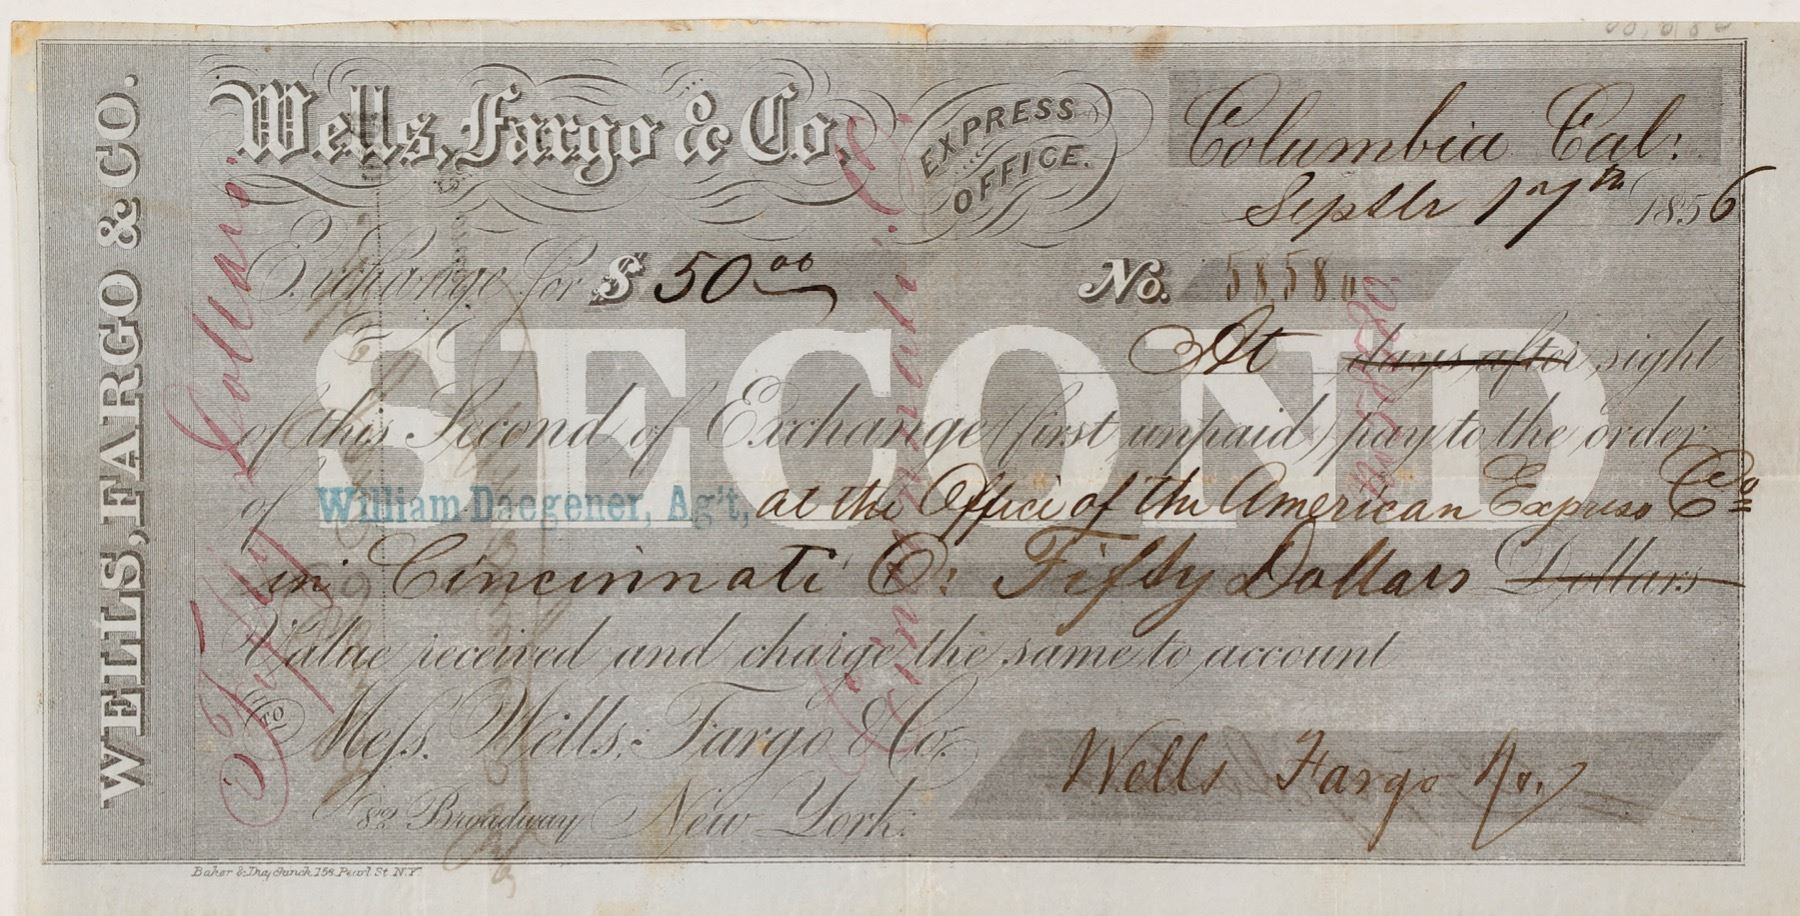 WELLS, FARGO & CO.
Wells, Fargo & Co.
EXPRESS OFFICE.
Columbia Cal:
Septbr 17th 1856
Exchange for $ 50 00
No. 58580
SECOND
At days after sight
of this Second of Exchange (first unpaid) pay to the order
of William Daegener, Ag't, at the Office of the American Express Co
in Cincinnati O: Fifty Dollars Dollars
Value received and charge the same to account
TO Mess. Wells, Fargo & Co.
82 Broadway New York.
Wells Fargo &Co.
Fifty Dollars.
Cincinnati O.
No. 58580.
158 Pearl St. N.Y.